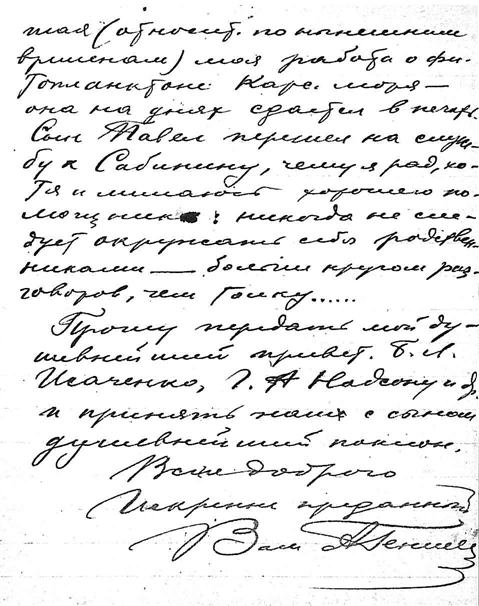 тая (относит. по нынешним
временам) моя работа о фи-
топланктоне Карс. моря —
она на днях сдается в печать.
Сын Павел перешел на служ-
бу к Сабинину, чему я рад, хо-
тя и лишаюсь хорошего по-
мощника: никогда не сле-
дует окружать себя родствен-
никами — больше кругом раз-
говоров, чем толку......
Прошу передать мой ду-
шевнейший привет. Б. Л.
Исаченко, Г. А Надсону и др.
и принять наш с сыном
душевнейший поклон.
Всего доброго
Искренне преданный
Вам